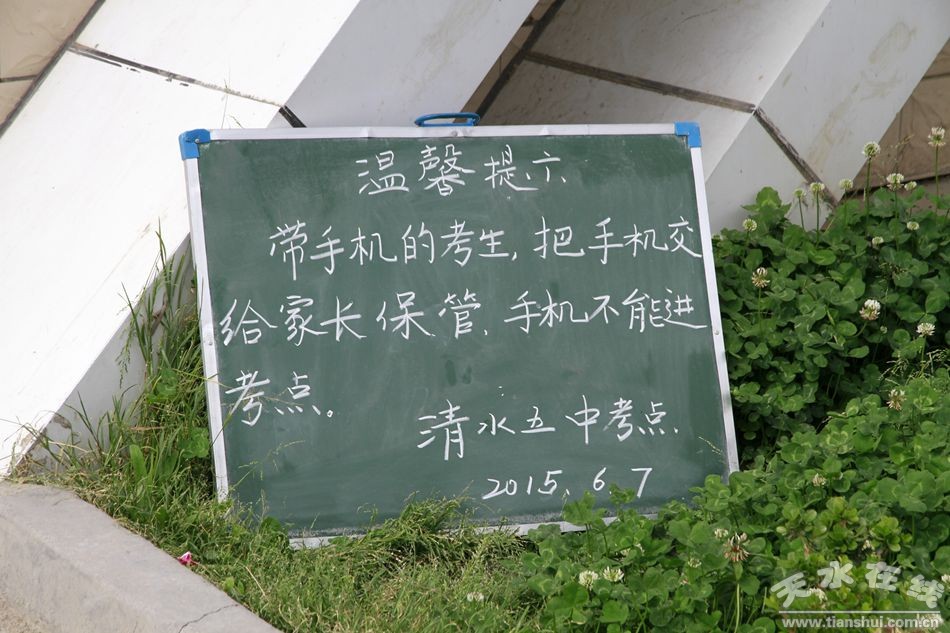 温馨提示
带手机的考生,把手机交
给家长保管、手机不能进
考点。
清水五中考点.
2015.6.7
天水在线
www.tianshui.com.cn